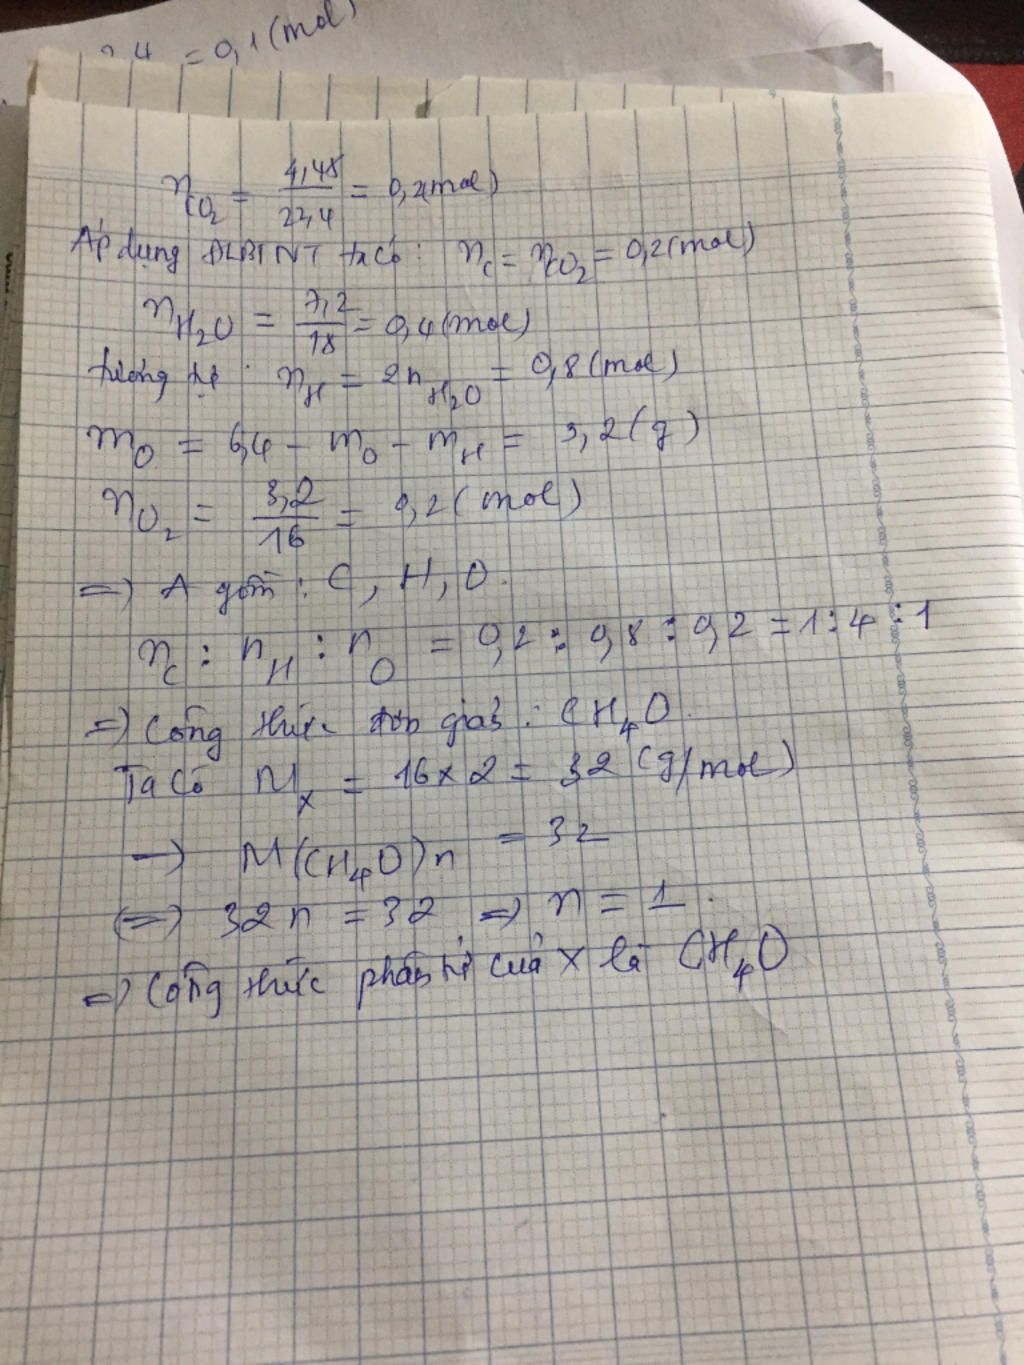 2,4 = 0,1(mol)
n_CO2 = 4,48/22,4 = 0,2(mol)
Áp dụng ĐLBTNT ta có: n_C = n_CO2 = 0,2(mol)
n_H2O = 7,2/18 = 0,4(mol)
tương tự: n_H = 2n_H2O = 0,8(mol)
m_O = 6,4 - m_O - m_H = 3,2(g)
n_O2 = 3,2/16 = 0,2(mol)
=> A gồm: C, H, O.
n_C : n_H : n_O = 0,2 : 0,8 : 0,2 = 1:4:1
=> Công thức đơn giản: CH4O.
Ta có M_X = 16x2 = 32 (g/mol)
-> M(CH4O)n = 32
<=> 32n = 32 => n = 1.
=> Công thức phân tử của X là CH4O